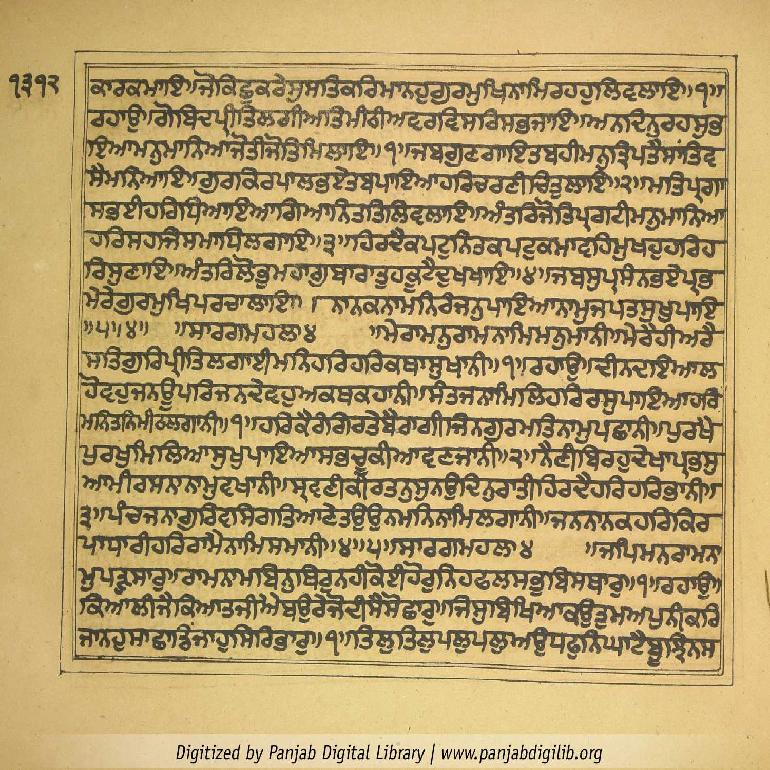 ੧੩੧੨
ਕਾਰਕਮਾਇ॥ਜੋਕਿਛੁਕਰੇਸੁਸਤਿਕਰਿਮਾਨਹੁਗੁਰਮੁਖਿਨਾਮਿਰਹਹੁਲਿਵਲਾਇ॥੧॥
ਰਹਾਉ॥ਗੋਬਿਦਪ੍ਰੀਤਿਲਗੀਅਤਿਮੀਠੀਅਵਰਵਿਸਰਿਸਭਜਾਇ॥ਅਨਦਿਨੁਰਹਸੁਭ
ਇਆਮਨੁਮਾਨਿਆਜੋਤੀਜੋਤਿਮਿਲਾਇ॥੧॥ਜਬਗੁਣਗਾਇਤਬਹੀਮਨੁਤ੍ਰਿਪਤੈਸਾਂਤਿਵ
ਸੈਮਨਿਆਇ॥ਗੁਰਕਿਰਪਾਲਭਏਤਬਪਾਇਆਹਰਿਚਰਣੀਚਿਤੁਲਾਇ॥੨॥ਮਤਿਪ੍ਰਗਾ
ਸਭਈਹਰਿਧਿਆਇਆਗਿਆਨਿਤਤਿਲਿਵਲਾਇ॥ਅੰਤਰਿਜੋਤਿਪ੍ਰਗਟੀਮਨੁਮਾਨਿਆ
ਹਰਿਸਹਜਿਸਮਾਧਿਲਗਾਇ॥੩॥ਹਿਰਦੈਕਪਟੁਨਿਤਕਪਟੁਕਮਾਵਹਿਮੁਖਹੁਹਰਿਹ
ਰਿਸੁਣਾਇ॥ਅੰਤਰਿਲੋਭੁਮਹਾਗੁਬਾਰਾਤੁਹਕੂਟੈਦੁਖਖਾਇ॥੪॥ਜਬਸੁਪ੍ਰਸੰਨਭਏਪ੍ਰਭ
ਮੇਰੇਗੁਰਮੁਖਿਪਰਚਾਲਾਇ॥ ਨਾਨਕਨਾਮਨਿਰੰਜਨੁਪਾਇਆਨਾਮੁਜਪਤਸੁਖੁਪਾਇ
॥੫॥੪॥ ॥ਸਾਰਗਮਹਲਾ੪ ॥ਮੇਰਾਮਨੁਰਾਮਨਾਮਿਮਨੁਮਾਨੀ॥ਮੇਰੈਹੀਅਰੈ
ਸਤਿਗੁਰਿਪ੍ਰੀਤਿਲਗਾਈਮਨਿਹਰਿਹਰਿਕਥਾਸੁਖਾਨੀ॥੧॥ਰਹਾਉ॥ਦੀਨਦਇਆਲ
ਹੋਵਹੁਜਨਊਪਰਿਜਨਦੇਵਹੁਅਕਥਕਹਾਨੀ॥ਸੰਤਜਨਾਮਿਲਿਹਰਿਰਸੁਪਾਇਆਹਰਿ
ਮਨਿਤਨਿਮੀਠਲਗਾਨੀ॥੧॥ਹਰਿਕੈਰੰਗਿਰਤੇਬੈਰਾਗੀਜਿਨਗੁਰਮਤਿਨਾਮੁਪਛਾਨੀ॥ਪੁਰਖੈ
ਪੁਰਖੁਮਿਲਿਆਸੁਖੁਪਾਇਆਸਭਚੂਕੀਆਵਣਜਾਨੀ॥੨॥ਨੈਣੀਬਿਰਹੁਦੇਖਾਪ੍ਰਭਸੁ
ਆਮੀਰਸਨਾਨਾਮੁਵਖਾਨੀ॥ਸ੍ਰਵਣੀਕੀਰਤਨੁਸੁਨਉਦਿਨੁਰਾਤੀਹਿਰਦੈਹਰਿਹਰਿਭਾਨੀ॥
੩॥ਪੰਚਜਨਾਗੁਰਿਵਸਿਗਤਿਆਣੇਤਉਉਨਮਨਿਨਾਮਿਲਗਾਨੀ॥ਜਨਨਾਨਕਹਰਿਕਿਰ
ਪਾਧਾਰੀਹਰਿਰਾਮੈਨਾਮਿਸਮਾਨੀ॥੪॥੫॥ਸਾਰਗਮਹਲਾ੪ ॥ਜਪਿਮਨਰਾਮਨਾ
ਮੁਪੜ੍ਹੁਸਾਰੁ॥ਰਾਮਨਾਮਬਿਨੁਥਿਰੁਨਹੀਕੋਈਹੋਰੁਨਿਹਫਲਸਭੁਬਿਸਥਾਰੁ॥੧॥ਰਹਾਉ॥
ਕਿਆਲੀਜੈਕਿਆਤਜੀਐਬਉਰੇਜੋਦੀਸੈਸੋਛਾਰੁ॥ਜਿਸੁਬਿਖਿਆਕਉਤੁਮਅਪੁਨੀਕਰਿ
ਜਾਨਹੁਸਾਛਾਡਿਜਾਹੁਸਿਰਿਭਾਰੁ॥੧॥ਤਿਲੁਤਿਲੁਪਲੁਪਲੁਅਉਧਫੁਨਿਘਾਟੈਬੂਝਿਨਸ
Digitized by Panjab Digital Library | www.panjabdigilib.org